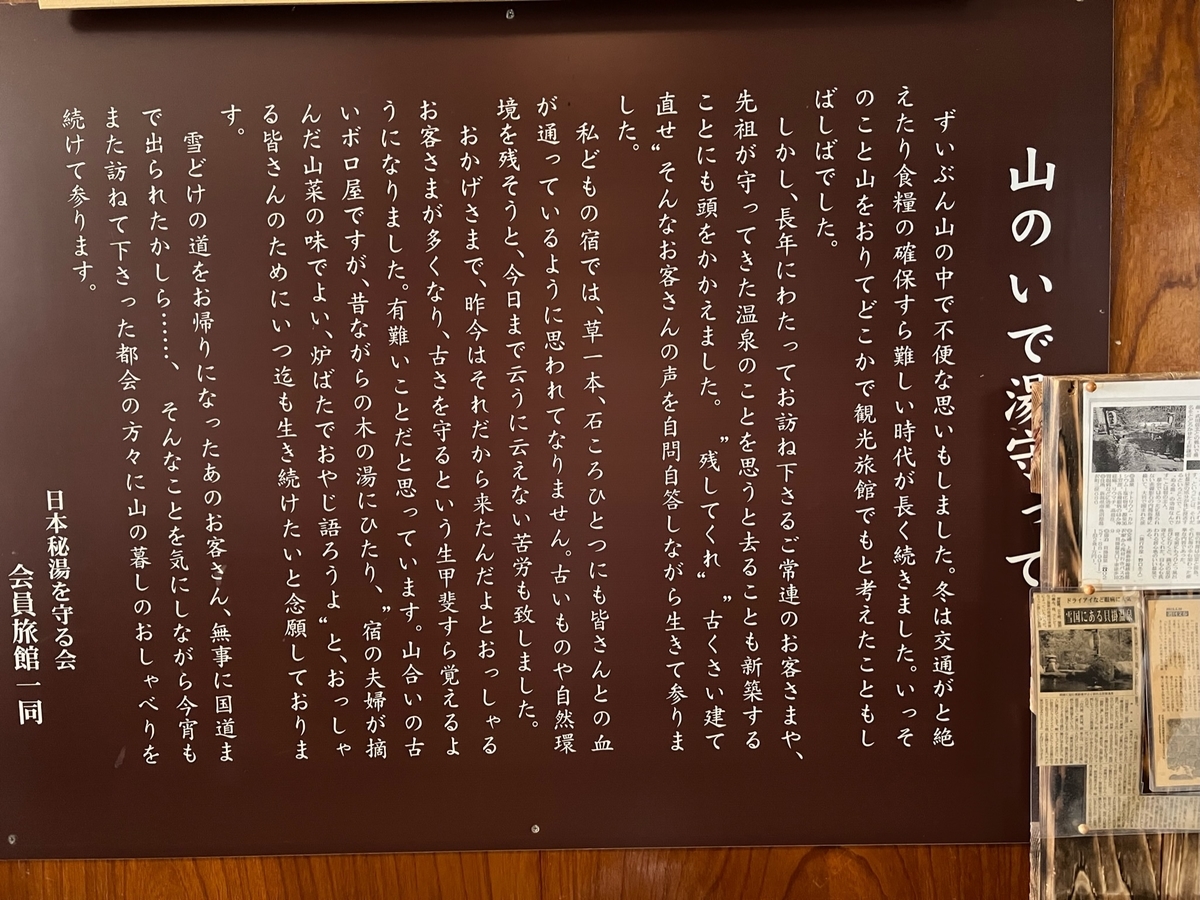 山のいで湯守って
ずいぶん山の中で不便な思いもしました。冬は交通がと絶
えたり食糧の確保すら難しい時代が長く続きました。いっそ
のこと山をおりてどこかで観光旅館でもと考えたこともし
ばしばでした。
しかし、長年にわたってお訪ね下さるご常連のお客さまや、
先祖が守ってきた温泉のことを思うと去ることも新築する
ことにも頭をかかえました。〝残してくれ〟〝古くさい建て
直せ〟そんなお客さんの声を自問自答しながら生きて参りま
した。
私どもの宿では、草一本、石ころひとつにも皆さんとの血
が通っているように思われてなりません。古いものや自然環
境を残そうと、今日まで云うに云えない苦労も致しました。
おかげさまで、昨今はそれだから来たんだよとおっしゃる
お客さまが多くなり、古さを守るという生甲斐すら覚えるよ
うになりました。有難いことだと思っています。山合いの古
いボロ屋ですが、昔ながらの木の湯にひたり、〝宿の夫婦が摘
んだ山菜の味でよい、炉ばたでおやじ語ろうよ〟と、おっしゃ
る皆さんのためにいつ迄も生き続けたいと念願しておりま
す。
雪どけの道をお帰りになったあのお客さん、無事に国道ま
で出られたかしら……、そんなことを気にしながら今宵も
また訪ねて下さった都会の方々に山の暮しのおしゃべりを
続けて参ります。
日本秘湯を守る会
会員旅館一同
ドライアイなど眼病に
雪国にある貝掛温泉